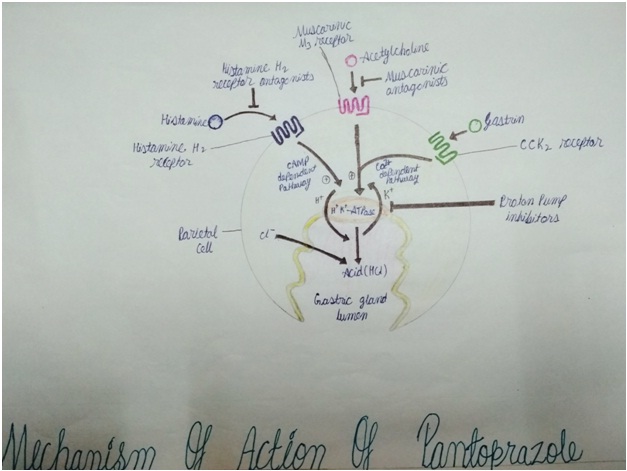 Muscarinic
M3 receptor
Acetylcholine
Histamine H2
receptor antagonists
Muscarinic
antagonists
Histamine
Gastrin
Histamine H2
receptor
CCK2 receptor
cAMP
dependent
Pathway
+
+
Ca2+
dependent
Pathway
H+
K+
H+K+-ATPase
Proton Pump
inhibitors
Parietal
Cell
Cl-
Acid (HCl)
Gastric gland
lumen
Mechanism Of Action Of Pantoprazole